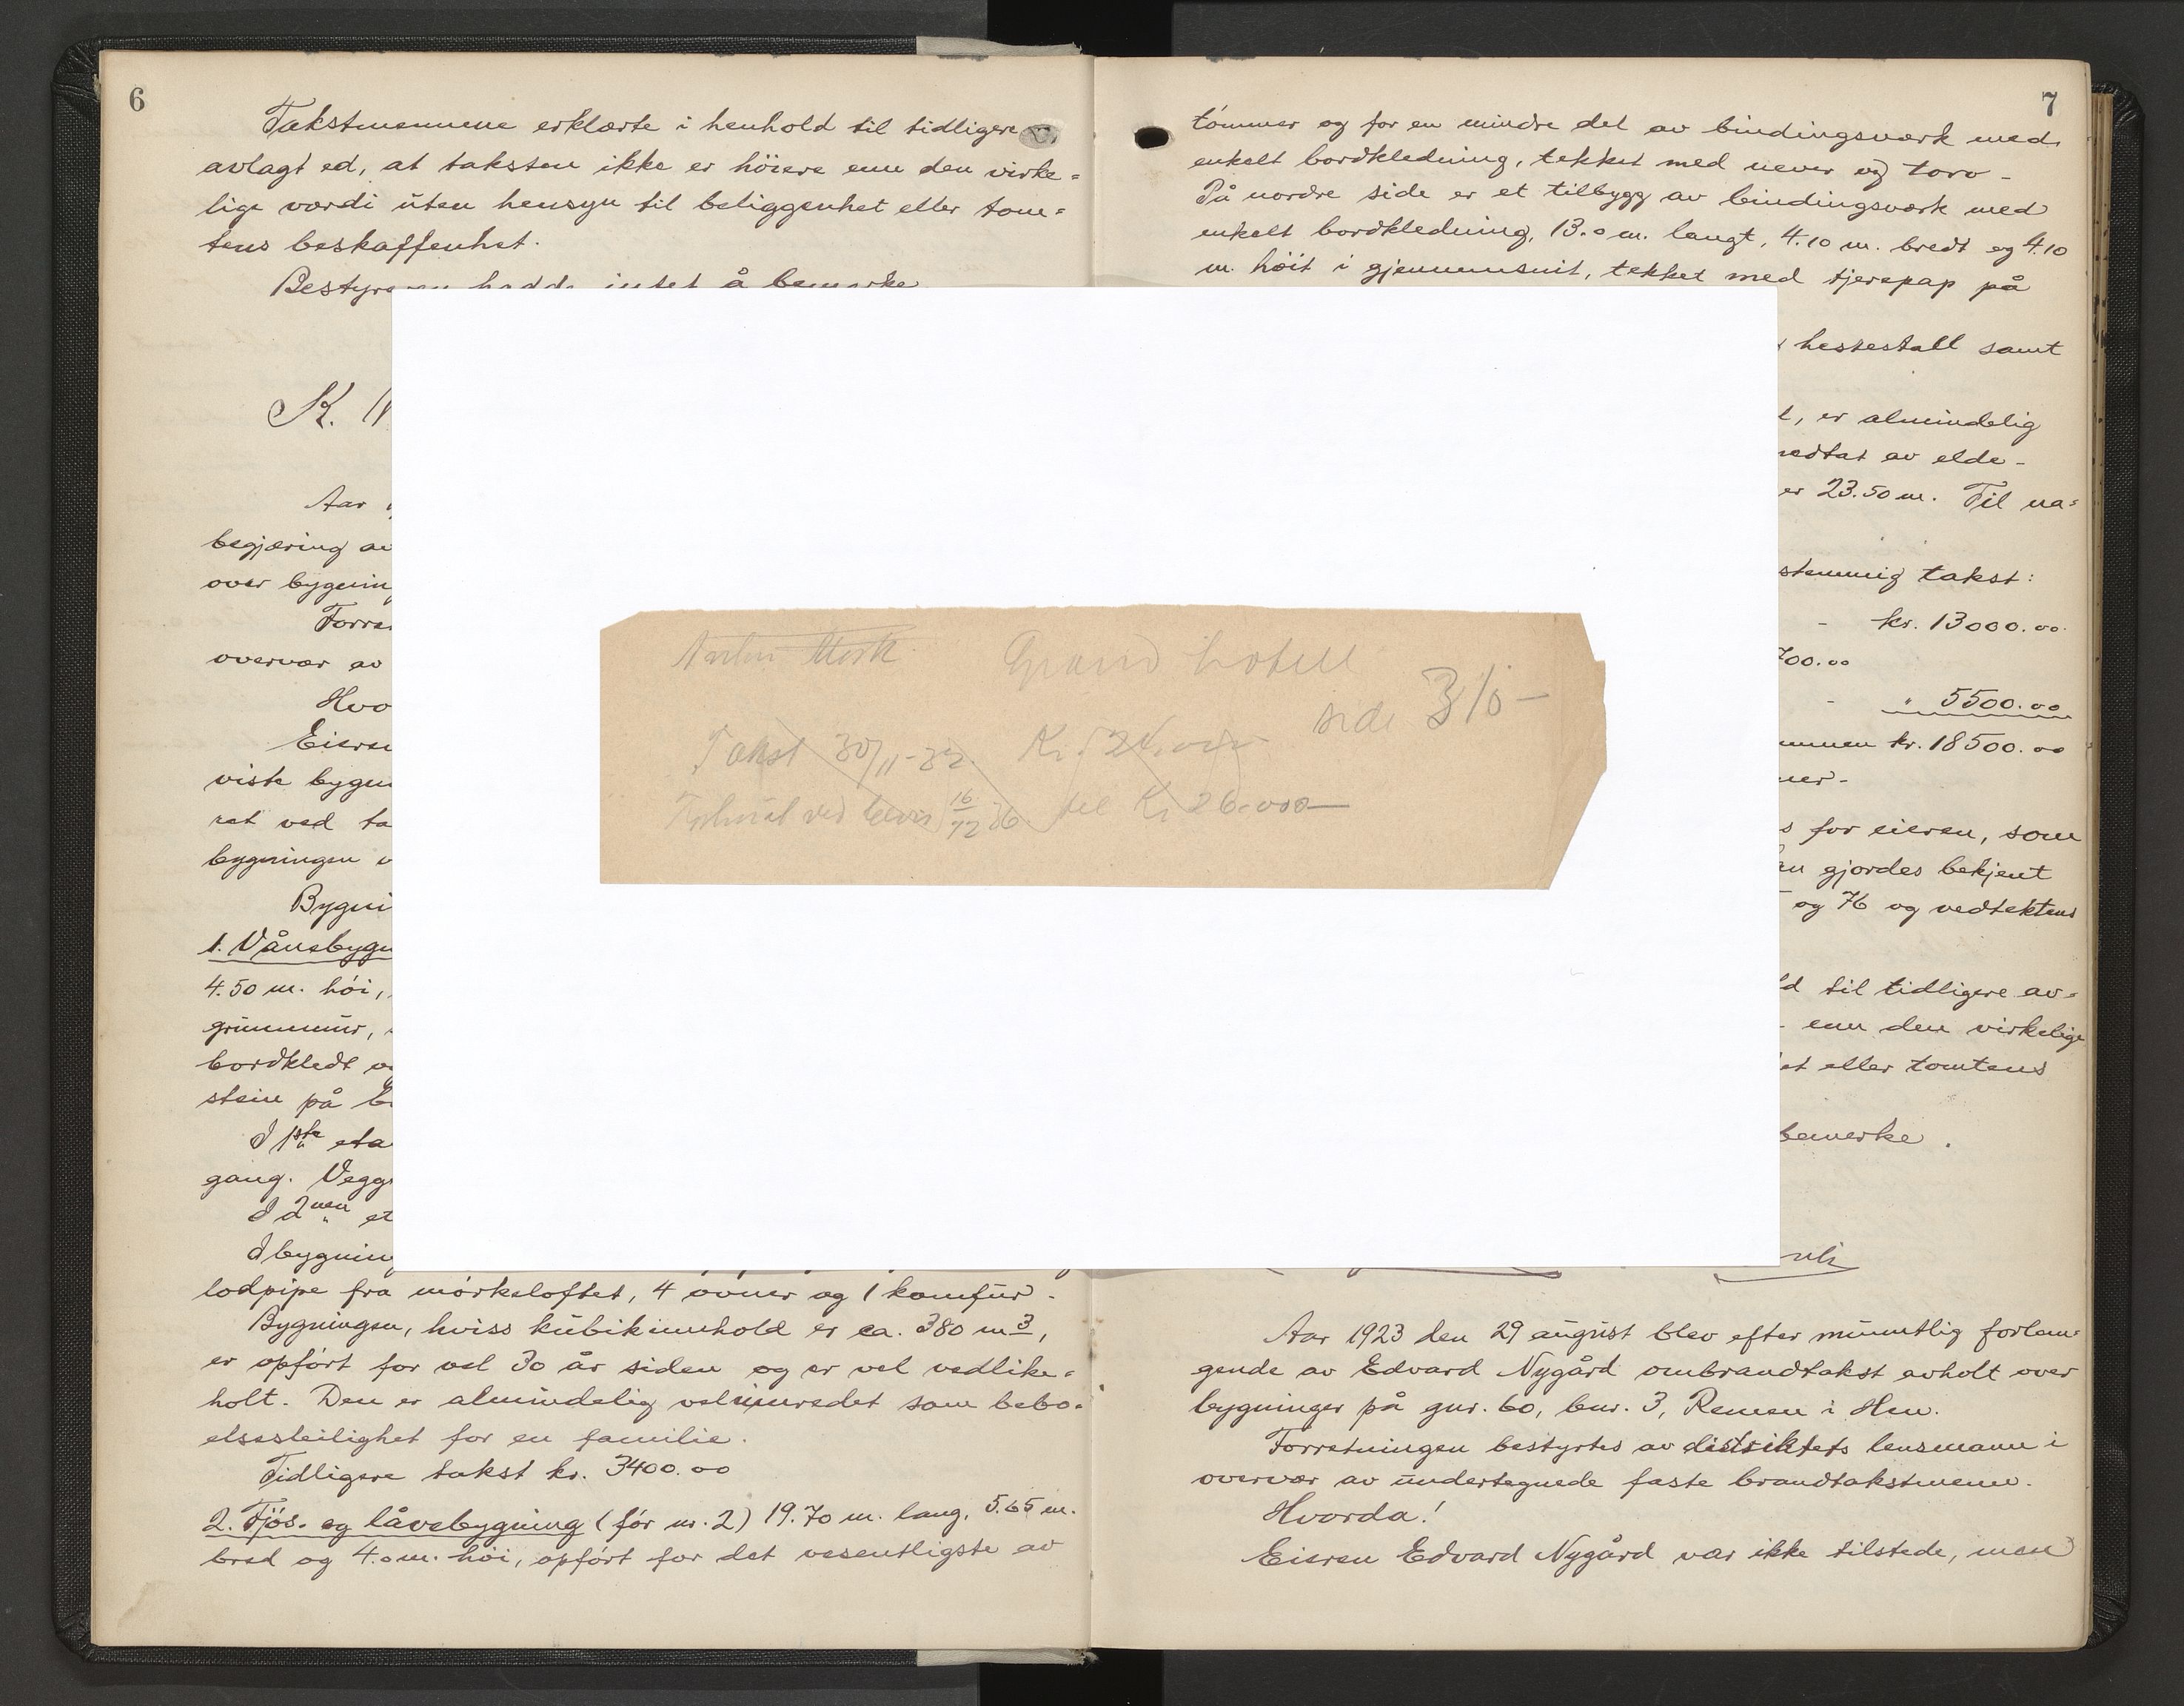 6
Takstmennene erklærte i henhold til tidligere
avlagt ed, at taksten ikke er höiere enn den virke=
lige værdi uten hensyn til beliggenhet eller tom=
tens beskaffenhet.
Bestyreren hadde intet å bemerke
K.
Aar
begjæring av
over bygnin
Forre
overvær av
Hvo
Eieren
viste bygn
ret ved ta
bygningen
Bygni
1. Vånebygn
4.50 m. höi,
grunnmur,
bordkledt
stein på
I 1ste eta
gang. Vegg
I 2nen et
I bygnin
lodpipe fra mörkeloftet, 4 ovner og 1 komfur.
Bygningen, hviss kubikinnhold er ca. 380 m3,
er opfört for vel 30 år siden og er vel vedlike=
holt. Den er almindelig velinnredet som bebo=
elsesleilighet for en familie.
Tidligere takst kr. 3400.00
2. Fjös- og låvebygning (för nr. 2) 19.70 m. lang, 5.65 m.
bred og 4.0 m. höi, opfört for det vesentligste av
Grand hotell
side 310-
Takst 30/11-32. Kr. 24.000
ved 16/12 36 til Kr 26.000
7
tömmer og for en mindre del av bindingsværk med
enkelt bordkledning, tekket med never og torv-
På nordre side er et tilbygg av bindingsværk med
enkelt bordkledning, 13.0 m. langt, 4.10 m. bredt og 4.10
m. höit i gjennemsnit, tekket med tjerepap på
hestestall samt
t, er almindelig
medtat av elde-
er 23.50 m. Til na=
stemmig takst:
- kr. 13000.00
700.00
- " 5500.00
ammen kr. 18500.00
ner-
s for eieren, som
an gjordes bekjent
og 76 og vedtektens
ld til tidligere av=
enn den virkelige
et eller tomtens
bemerke.
Aar 1923 den 29 august blev efter munntlig forlan=
gende av Edvard Nygård ombrandtakst avholt over
bygninger på gnr. 60, bnr. 3, Remen i Hen.
Forretningen bestyrtes av distriktets lensmann i
overvær av undertegnede faste brandtakstmenn.
Hvorda!
Eieren Edvard Nygård var ikke tilstede, men